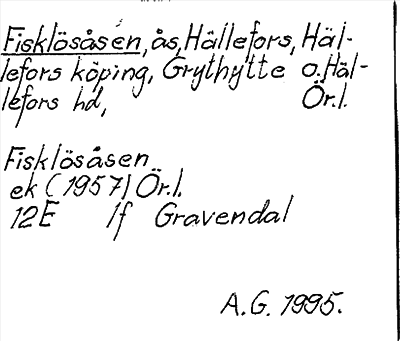 Fisklösåsen, ås, Hällefors, Häl-
lefors köping, Grythytte o. Häl-
lefors hd, Ör.l.
Fisklösåsen
ek (1957) Ör.l.
12E 1f Gravendal
A.G. 1995.